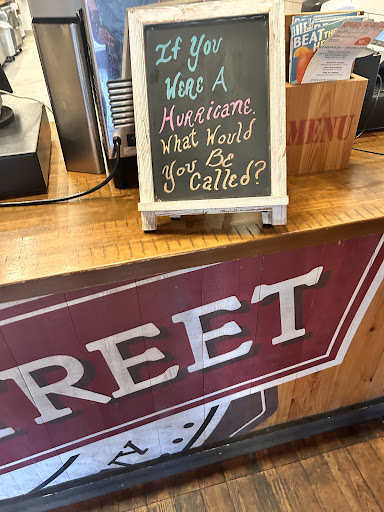 If You
Were A
Hurricane.
What Would
You Be
Called?
BEAT THE
MENU
REET